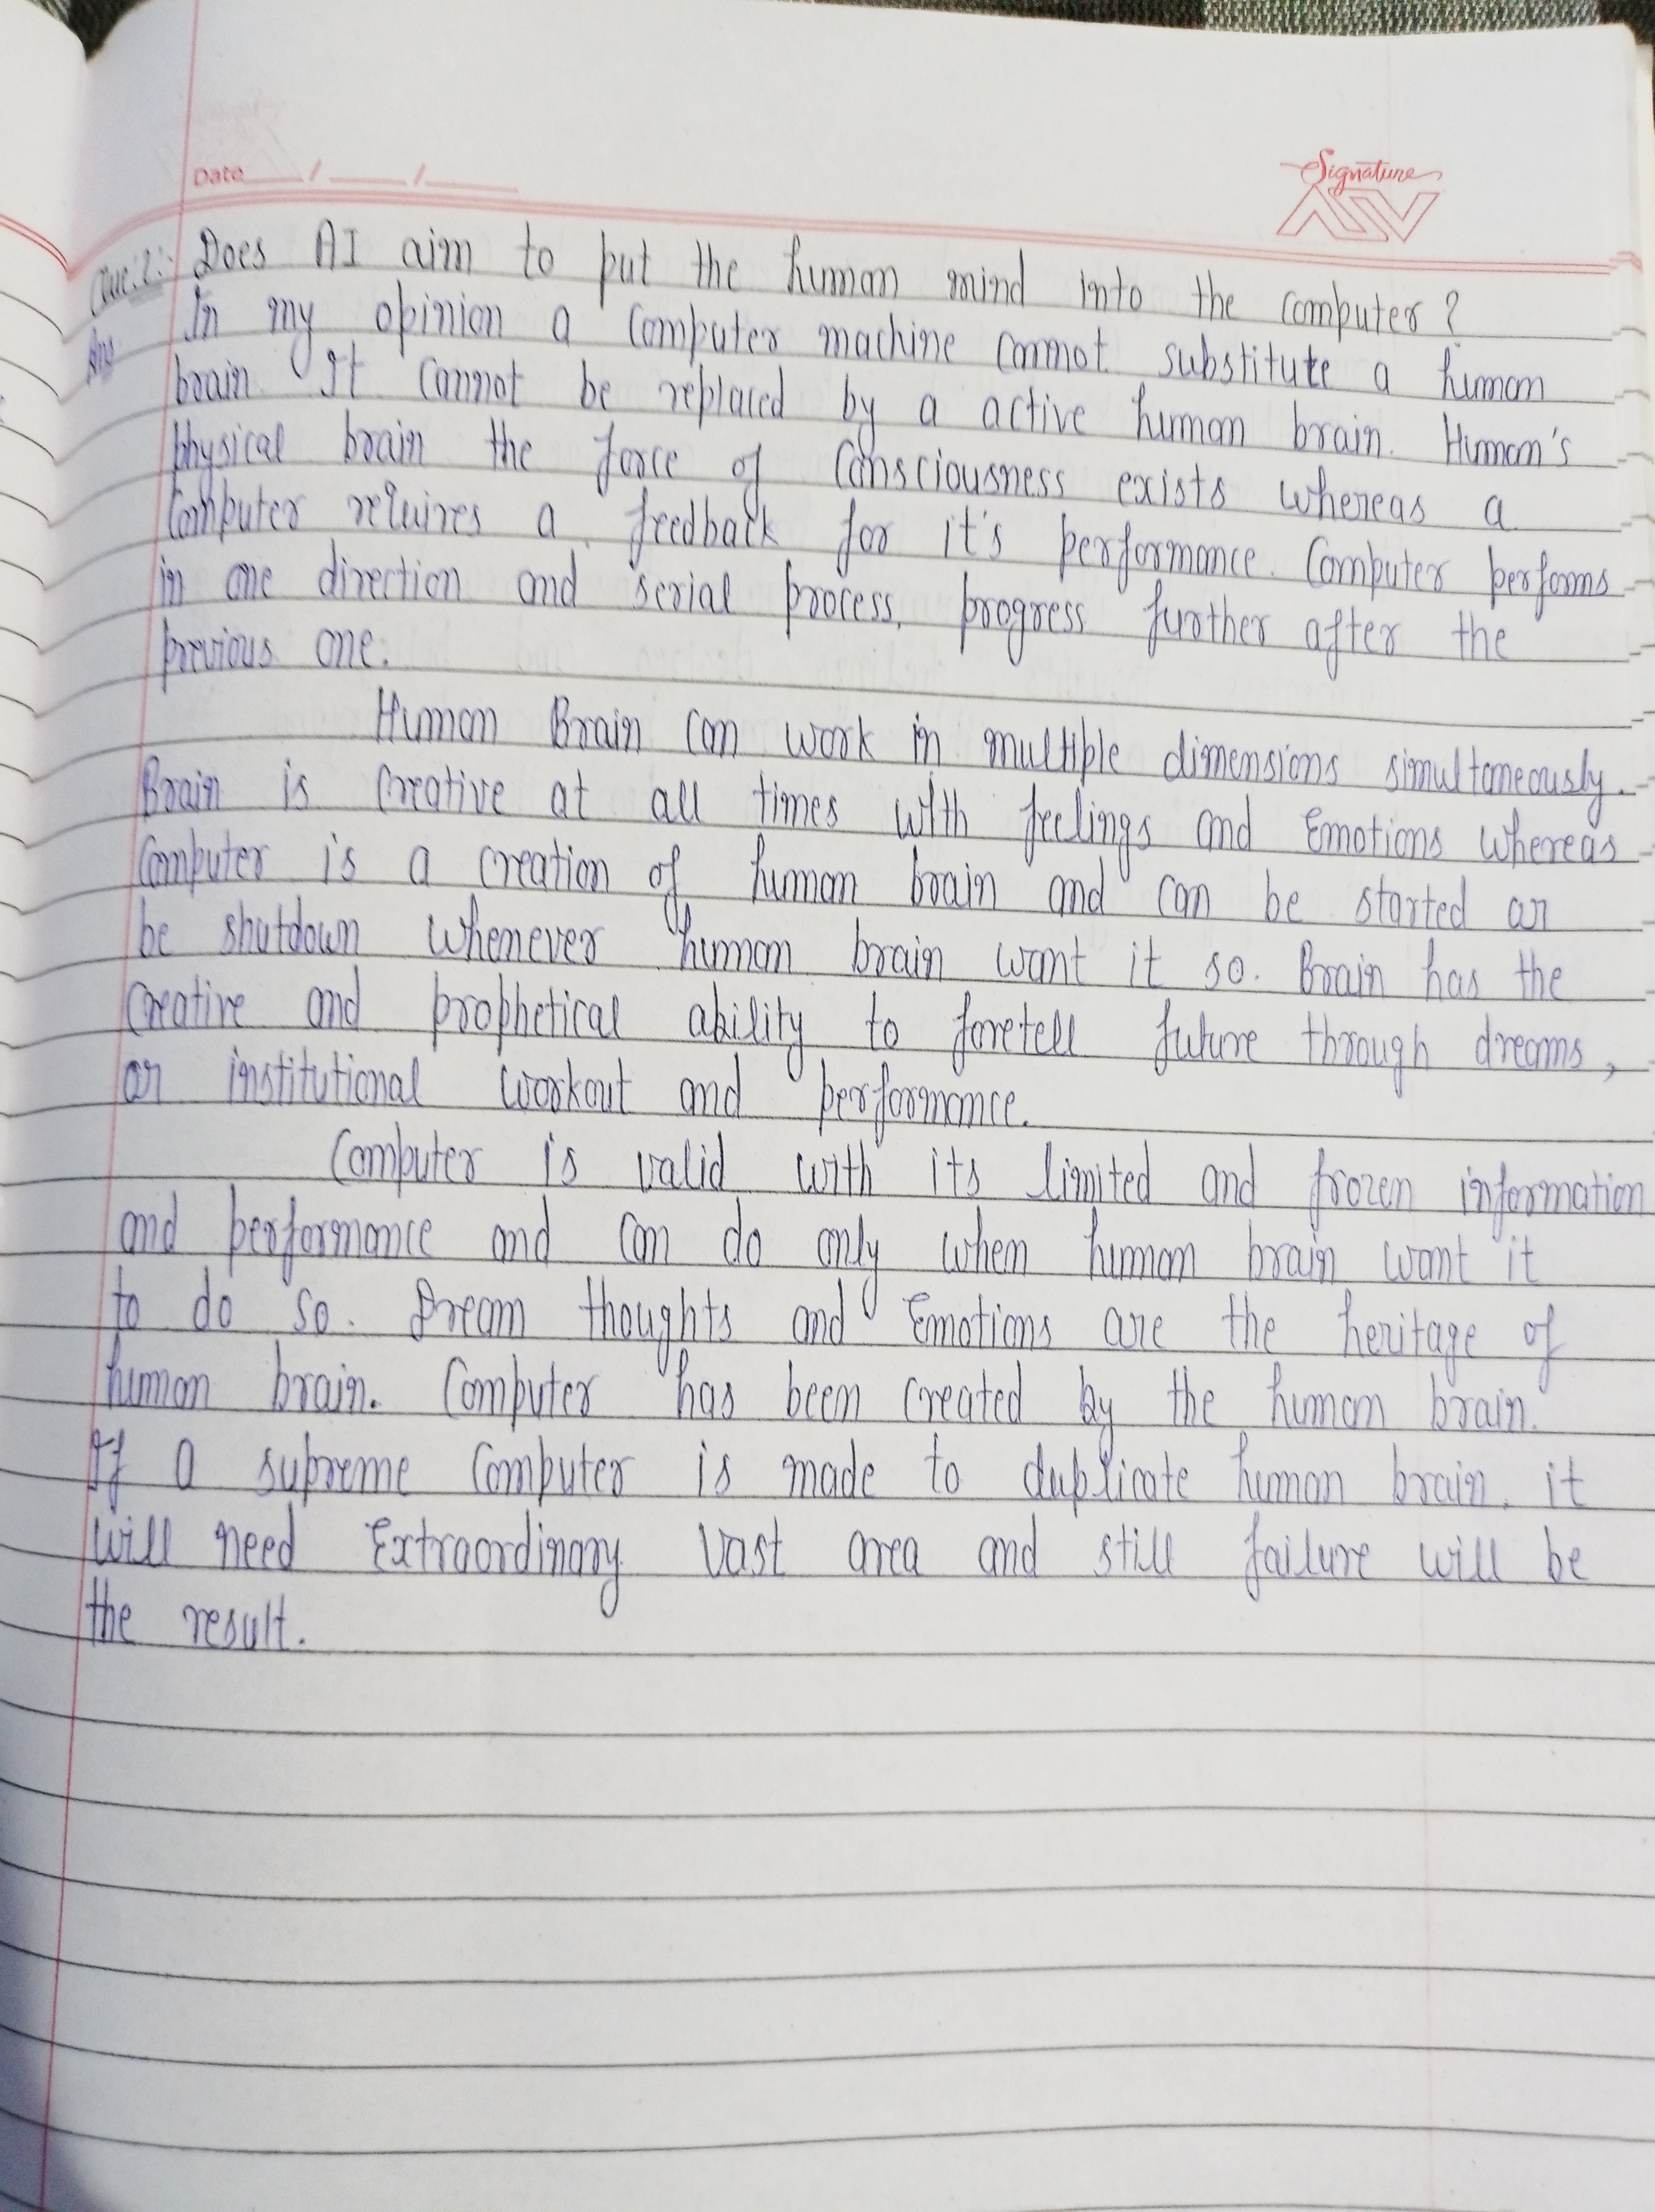 Date / /
Signature
Que:2:- Does AI aim to put the human mind into the computer?
Ans In my opinion a computer machine cannot substitute a human
brain. It cannot be replaced by a active human brain. Human's
physical brain the force of Consciousness exists whereas a
Computer requires a feedback for it's performance. Computer performs
in one direction and serial process, progress further after the
previous one.
Human Brain can work in multiple dimensions simultaneously.
Brain is Creative at all times with feelings and Emotions whereas
Computer is a creation of human brain and can be started or
be shutdown whenever human brain want it so. Brain has the
Creative and prophetical ability to foretell future through dreams,
or institutional workout and performance.
Computer is valid with its limited and frozen information
and performance and can do only when human brain want it
to do so. Dream thoughts and Emotions are the heritage of
human brain. Computer has been created by the human brain.
If a supreme Computer is made to duplicate human brain, it
will need Extraordinary vast area and still failure will be
the result.